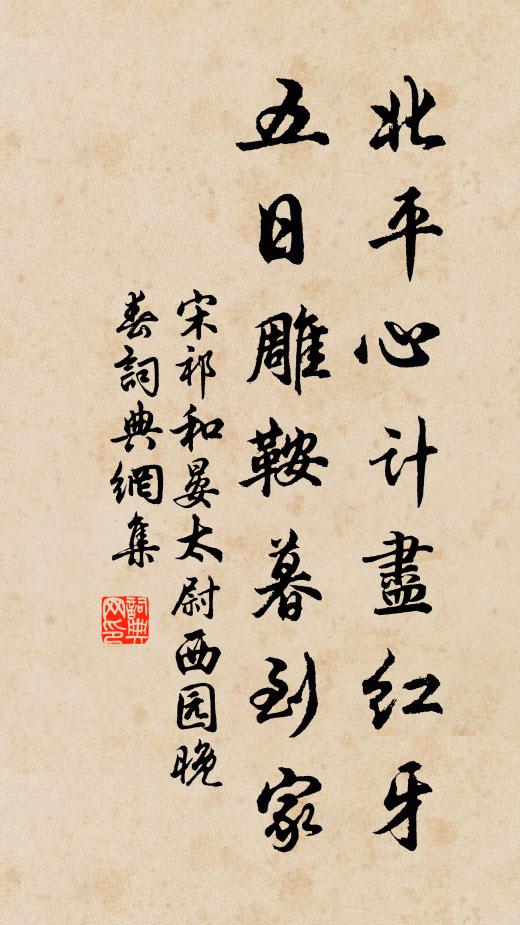 北平心计盡红牙
五日雕鞍暮到家
宋祁和晏太尉西园晚
春詞典網集
詞典
网印